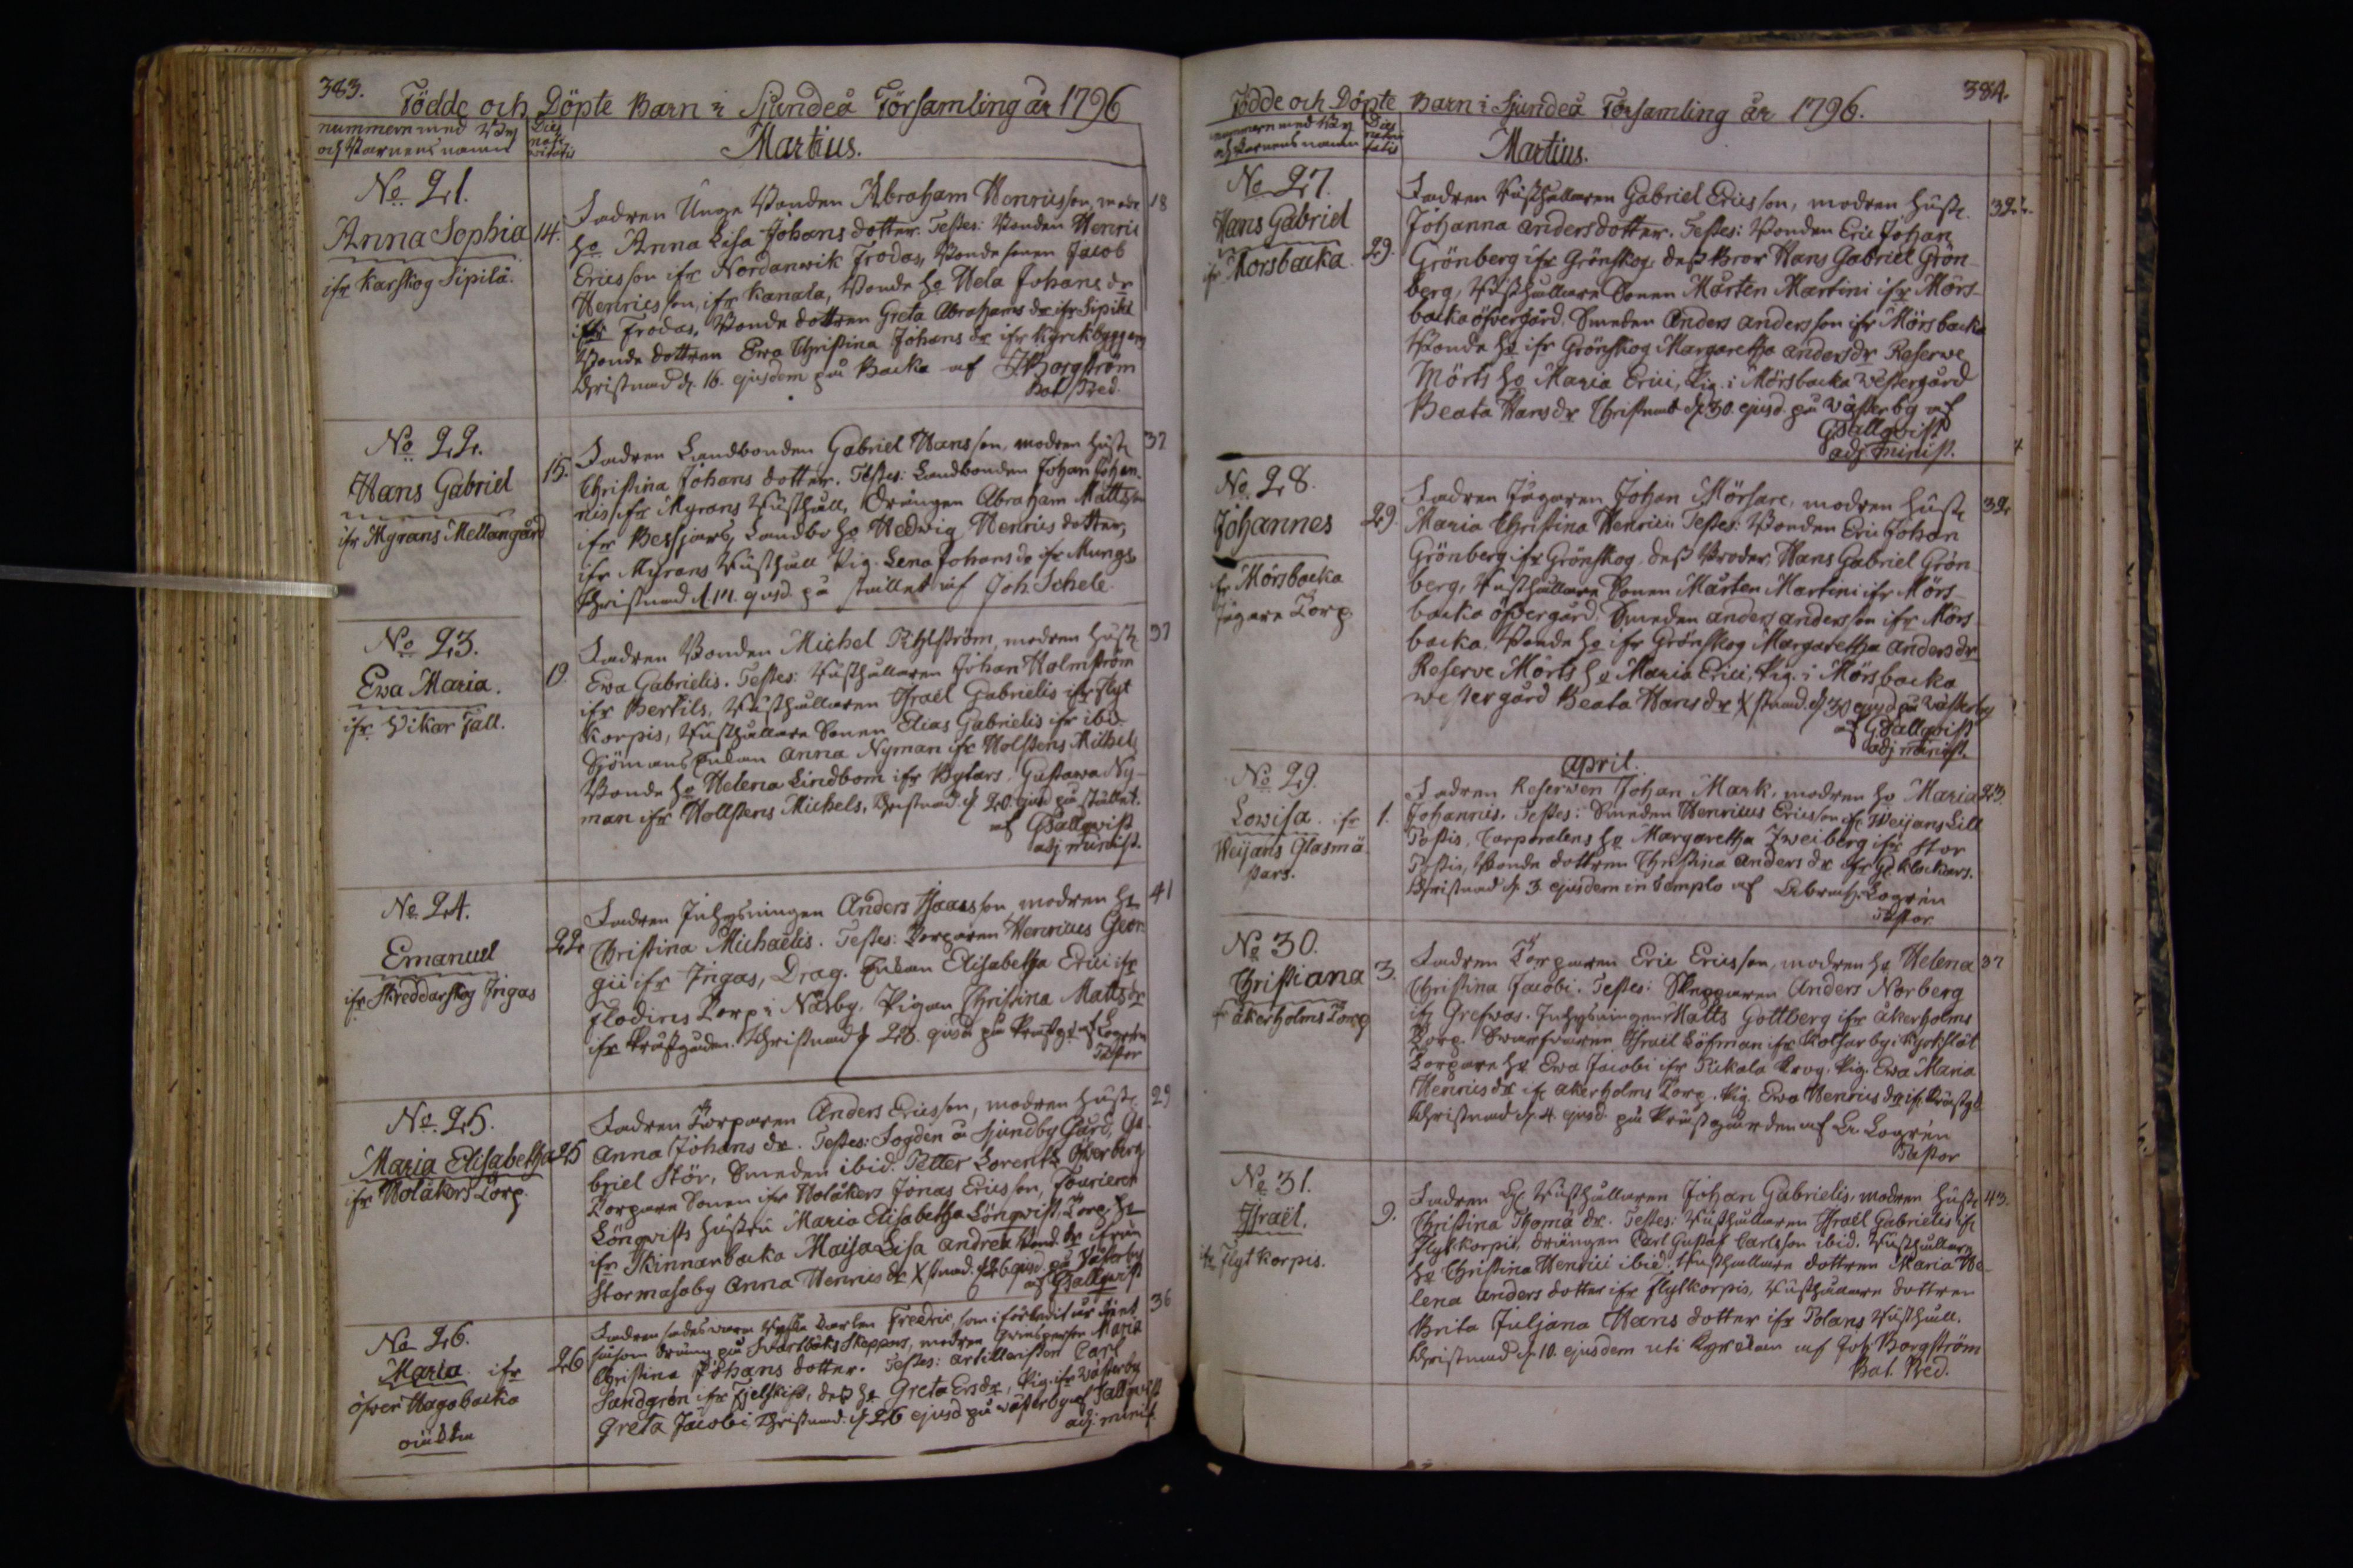 383.
Födde och Döpte Barn i Sjundeå Församling år 1796
nummern med By
och Barnens namn
Dies
nati
vitatis
Martius.
No 21.
Anna Sophia
ifr Karskog Sipilä.
14.
Fadren Unge Bonden Abraham Henricsson, modr
ho Anna Lisa Johans dotter. Testes: Bonden Henric
Ericsson ifr Nordanwik Frodas, Bondesonen Jacob
Henricsson, ifr Kanala, Bonde ho Hela Johans dr
ifr Frodas, Bonde dottren Greta Abrahams dr ifr Sipilä
Bonde dottren Ewa Christina Johans dr ifr Kyrkbyggers
Christnad d. 16. ejusdem på Backa af J Borgström
Bat. Pred.
18
No 22.
Hans Gabriel
ifr Myrans Mellangård
15.
Fadren Landbonden Gabriel Hansson, modren hust.
Christina Johans dotter. Testes: Landbonden Johan Johan-
nis ifr Myrans Rusthåll, Drängen Abraham Mattsson
ifr Bessjars, Landbo ho Hedwig Henrics dotter,
ifr Myrans Rusthåll Pig. Lena Johans dr ifr Mungs
Christnad d. 17. ejusd. på stället af Joh. Schele.
37
No 23.
Ewa Maria.
ifr Vikar Tall.
19.
Fadren Bonden Michel Pihlström, modren hust.
Ewa Gabrielis. Testes: Rusthållaren Johan Holmström
ifr Bertils, Rusthållaren Israel Gabrielis ifr Flyt
korpis, Rusthållare Sonen Elias Gabrielis ifr ibid.
Sjömans Enkan Anna Nyman ifr Holstens Michels
Bonde ho Helena Lindbom ifr Bylars. Gustawa Ny-
man ifr Hollstens Michels, Christnad. d. 20. ejusd på stället.
af G Tallqvist
adj minist.
37
No 24.
Emanuel
ifr Skreddarskog Ingas
22
Fadren Inhysningen Anders Isaacsson modren ho
Christina Michaëlis. Testes: Torparen Henricus Geor
gii ifr Ingas, Drag. Enkan Elisabetha Erici ifr
Flodins Torp i Näsby. Pigan Christina Matts dr
ifr Prästgården. Christnad d 28. ejusd på Prästgd af Logren
Pastor
41
No 25.
Maria Elisabetha
ifr Wolåkers Torp.
25
Fadren Torparen Anders Ericsson, modren hust.
Anna Johans dr. Testes: Fogden å Sjundby Gård, Ga
briel Stör, Smeden ibid. Petter Lorentz Öfverberg
Torpare Sonen ifr Wolåkers Jonas Ericsson, Fourieren
Lönqwists hustru Maria Elisabetha Lönqwist, Torp. ho
ifr Skinnarbacka Maija Lisa Andreæ Bond. dr ifrån
Stormasaby Anna Henrics dr Xstnad. d 26 ejusd. på Västerby
af G Tallqvist
29
No 26.
Maria ifr
öfver Hagabacka
oäkta
26
Fadren sades wara Fredric, som i
på Svartbäks Skeppars, modren Maria
Christina Johans dotter. Testes: artilleristen Carl
Sandgrén ifr Fjelskiss, dess ho Greta Ersdr, Pig. ifr Västerby
Greta Jacobi, Christnad. d 26 ejusd på Västerby af Tallqvist
adj: minist.
36
384.
Födde och Döpte Barn i Sjundeå Församling år 1796.
nummern med By
och Barnens namn
Dies
nativi
tatis
Martius.
No 27.
Hans Gabriel
ifr Morsbacka
29.
Fadren Rusthållaren Gabriel Ericsson, modren hust.
Johanna Andersdotter. Testes: Bonden Eric Johan
Grönberg ifr Grönskog, dess Bror Hans Gabriel Grön-
berg, Rusthållare Sonen Mårten Martini ifr Mörs-
backa öfvergård, Smeden Anders Andersson ifr Mörsbacka
Bonde ho ifr Grönskog Margaretha Andersdr Reserwe
Mörts ho Maria Erici, Pig. i Mörsbacka westergård
Beata Hansdr Christnad d. 30. ejusd. på Västerby af
G Tallqvist
adj minist.
32.
No 28.
Johannes
fr Mörsbacka
Jägare Torp
29
Fadren Jägaren Johan Mörsare, modren hust.
Maria Christina Henrici. Testes: Bonden Eric Johan
Grönberg ifr Grönskog, dess Broder, Hans Gabriel Grön
berg, Rusthållare Sonen Mårten Martini ifr Mörs-
backa öfvergård. Smeden Anders Andersson ifr Mörs-
backa, Bonde ho ifr Grönskog Margaretha Andersdr
Reserve Mörts ho Maria Erici, Pig. i Mörsbacka
westergård Beata Hansdr Xstnad. d. 30 ejusd på Västerby
af G Tallqvist
adj minist.
32
April.
No 29.
Lowisa ifr
Weijans Glasmä
stars.
1.
Fadren Reserwen Johan Mark, modren ho Maria
Johannis. Testes: Smeden Henricus Ericsson ifr Weijans Lill
Postis, Corporalens ho Margaretha Zweiberg ifr Stor
Postis, Bonde dottren Christina Anders dr ifr Gl Klockars.
Christnad d. 3. ejusdem in templo af Abrah. Logrén
Pastor
23.
No 30.
Christiana
fr Åkerholms Torp
3.
Fadren Torparen Eric Ericsson, modren ho Helena
Christina Jacobi. Testes: Skepparen Anders Norberg
ifr Grefwas. Inhysningen Matts Gottberg ifr Åkerholms
Torp. Swarfwaren Israel Löfman ifr Kolsarby i Kyrkslät
Torpare ho Ewa Jacobi ifr Pikala Krog. Pig. Ewa Maria
Henrics dr ifr Åkerholms Torp. Pig. Ewa Henrics dr ifr Prästgd
Christnad d. 4. ejusd. på Prästgården af Logrén
Pastor
37
No 31.
Israël.
ifr Flytkorpis.
9.
Fadren Rusthållaren Johan Gabrielis, modren hust.
Christina Thoma dr. Testes: Rusthållaren Israël Gabrielis ifr
Flytkorpis, drängen Carl Gustaf Carlsson ibid. Rusthållare
ho Christina Henrici ibid. Rusthållare dottren Maria He-
lena Anders dotter ifr Flytkorpis, Rusthållare dottren
Brita Juljana Hans dotter ifr Polans Rusthåll.
Christnad d. 10. ejusdem uti Kyrckan af Joh: Borgström
Bat. Pred.
43.